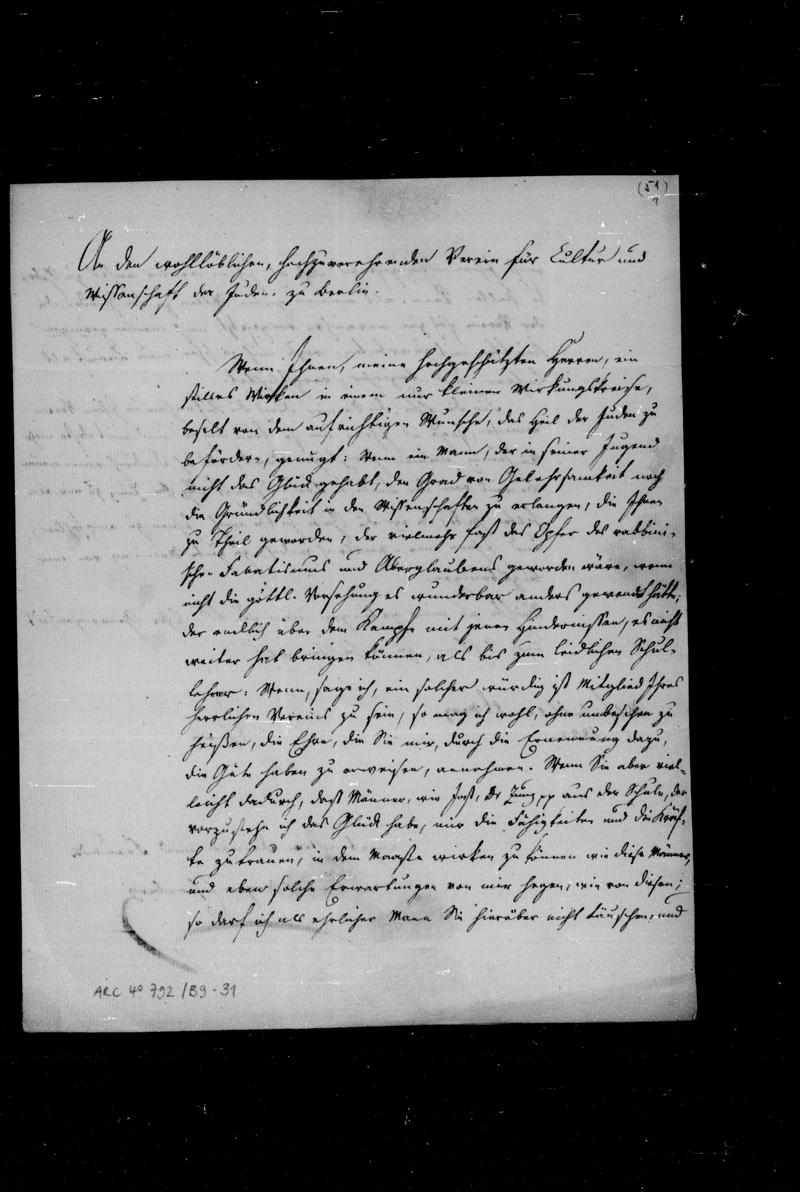 (51)
1
An den wohllöblichen, hochzuverehrenden Verein für Cultur und
Wissenschaft der Juden, zu Berlin.
Wenn Ihnen, meine hochgeschätzten Herren, ein
stilles Wirken in einem nur kleinen Wirkungskreise,
beselt von dem aufrichtigen Wunsche, das Heil der Juden zu
befördern, genügt: Wenn ein Mann, der in seiner Jugend
nicht das Glück gehabt, den Grad von Gelehrsamkeit noch
die Gründlichkeit in den Wissenschaften zu erlangen, die Ihnen
zu Theil geworden, der vielmehr fast das Opfer des rabbini-
schen Fanatismus und Aberglaubens geworden wäre, wenn
nicht die göttl. Vorsehung es wunderbar anders gewendet hätte;
der endlich über dem Kampfe mit jenen Hindernissen, es nicht
weiter hat bringen können, als bis zum leidlichen Schul-
lehrer: Wenn, sage ich, ein solcher würdig ist Mitglied Ihres
herrlichen Vereins zu sein, so mag ich wohl, ohne unbescheiden zu
heißen, die Ehre, die Sie mir, durch die Ernennung dazu,
die Güte haben zu erweisen, annehmen. Wenn Sie aber viel-
leicht dadurch, daß Männer, wie Jost, Dr Zunz, pp aus der Schule, der
vorzustehn ich das Glück habe, mir die Fähigkeiten und die Kräf-
te zutrauen, in dem Maaße wirken zu können wie diese Männer,
und eben solche Erwartungen von mir hegen, wie von diesen;
so darf ich als ehrlicher Mann Sie hierüber nicht täuschen, und
ARC 4° 792 / B9 - 31